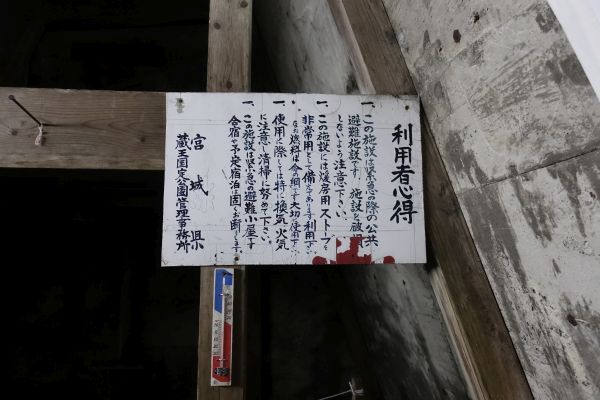 利用者心得
一、この施設は緊急の際の公共
避難施設です。施設を破損
しないよう注意下さい。
一、この施設には煖房用ストーブを
非常用として備えてあります利用下さい
なお燃料は命の綱です大切に使用下さい
一、使用に際しては特に換気、火気
に注意し清掃に努めて下さい。
一、この施設は緊急の避難小屋です
合宿や予定宿泊は固くお断りします。
宮城県
蔵王国定公園管理事務所